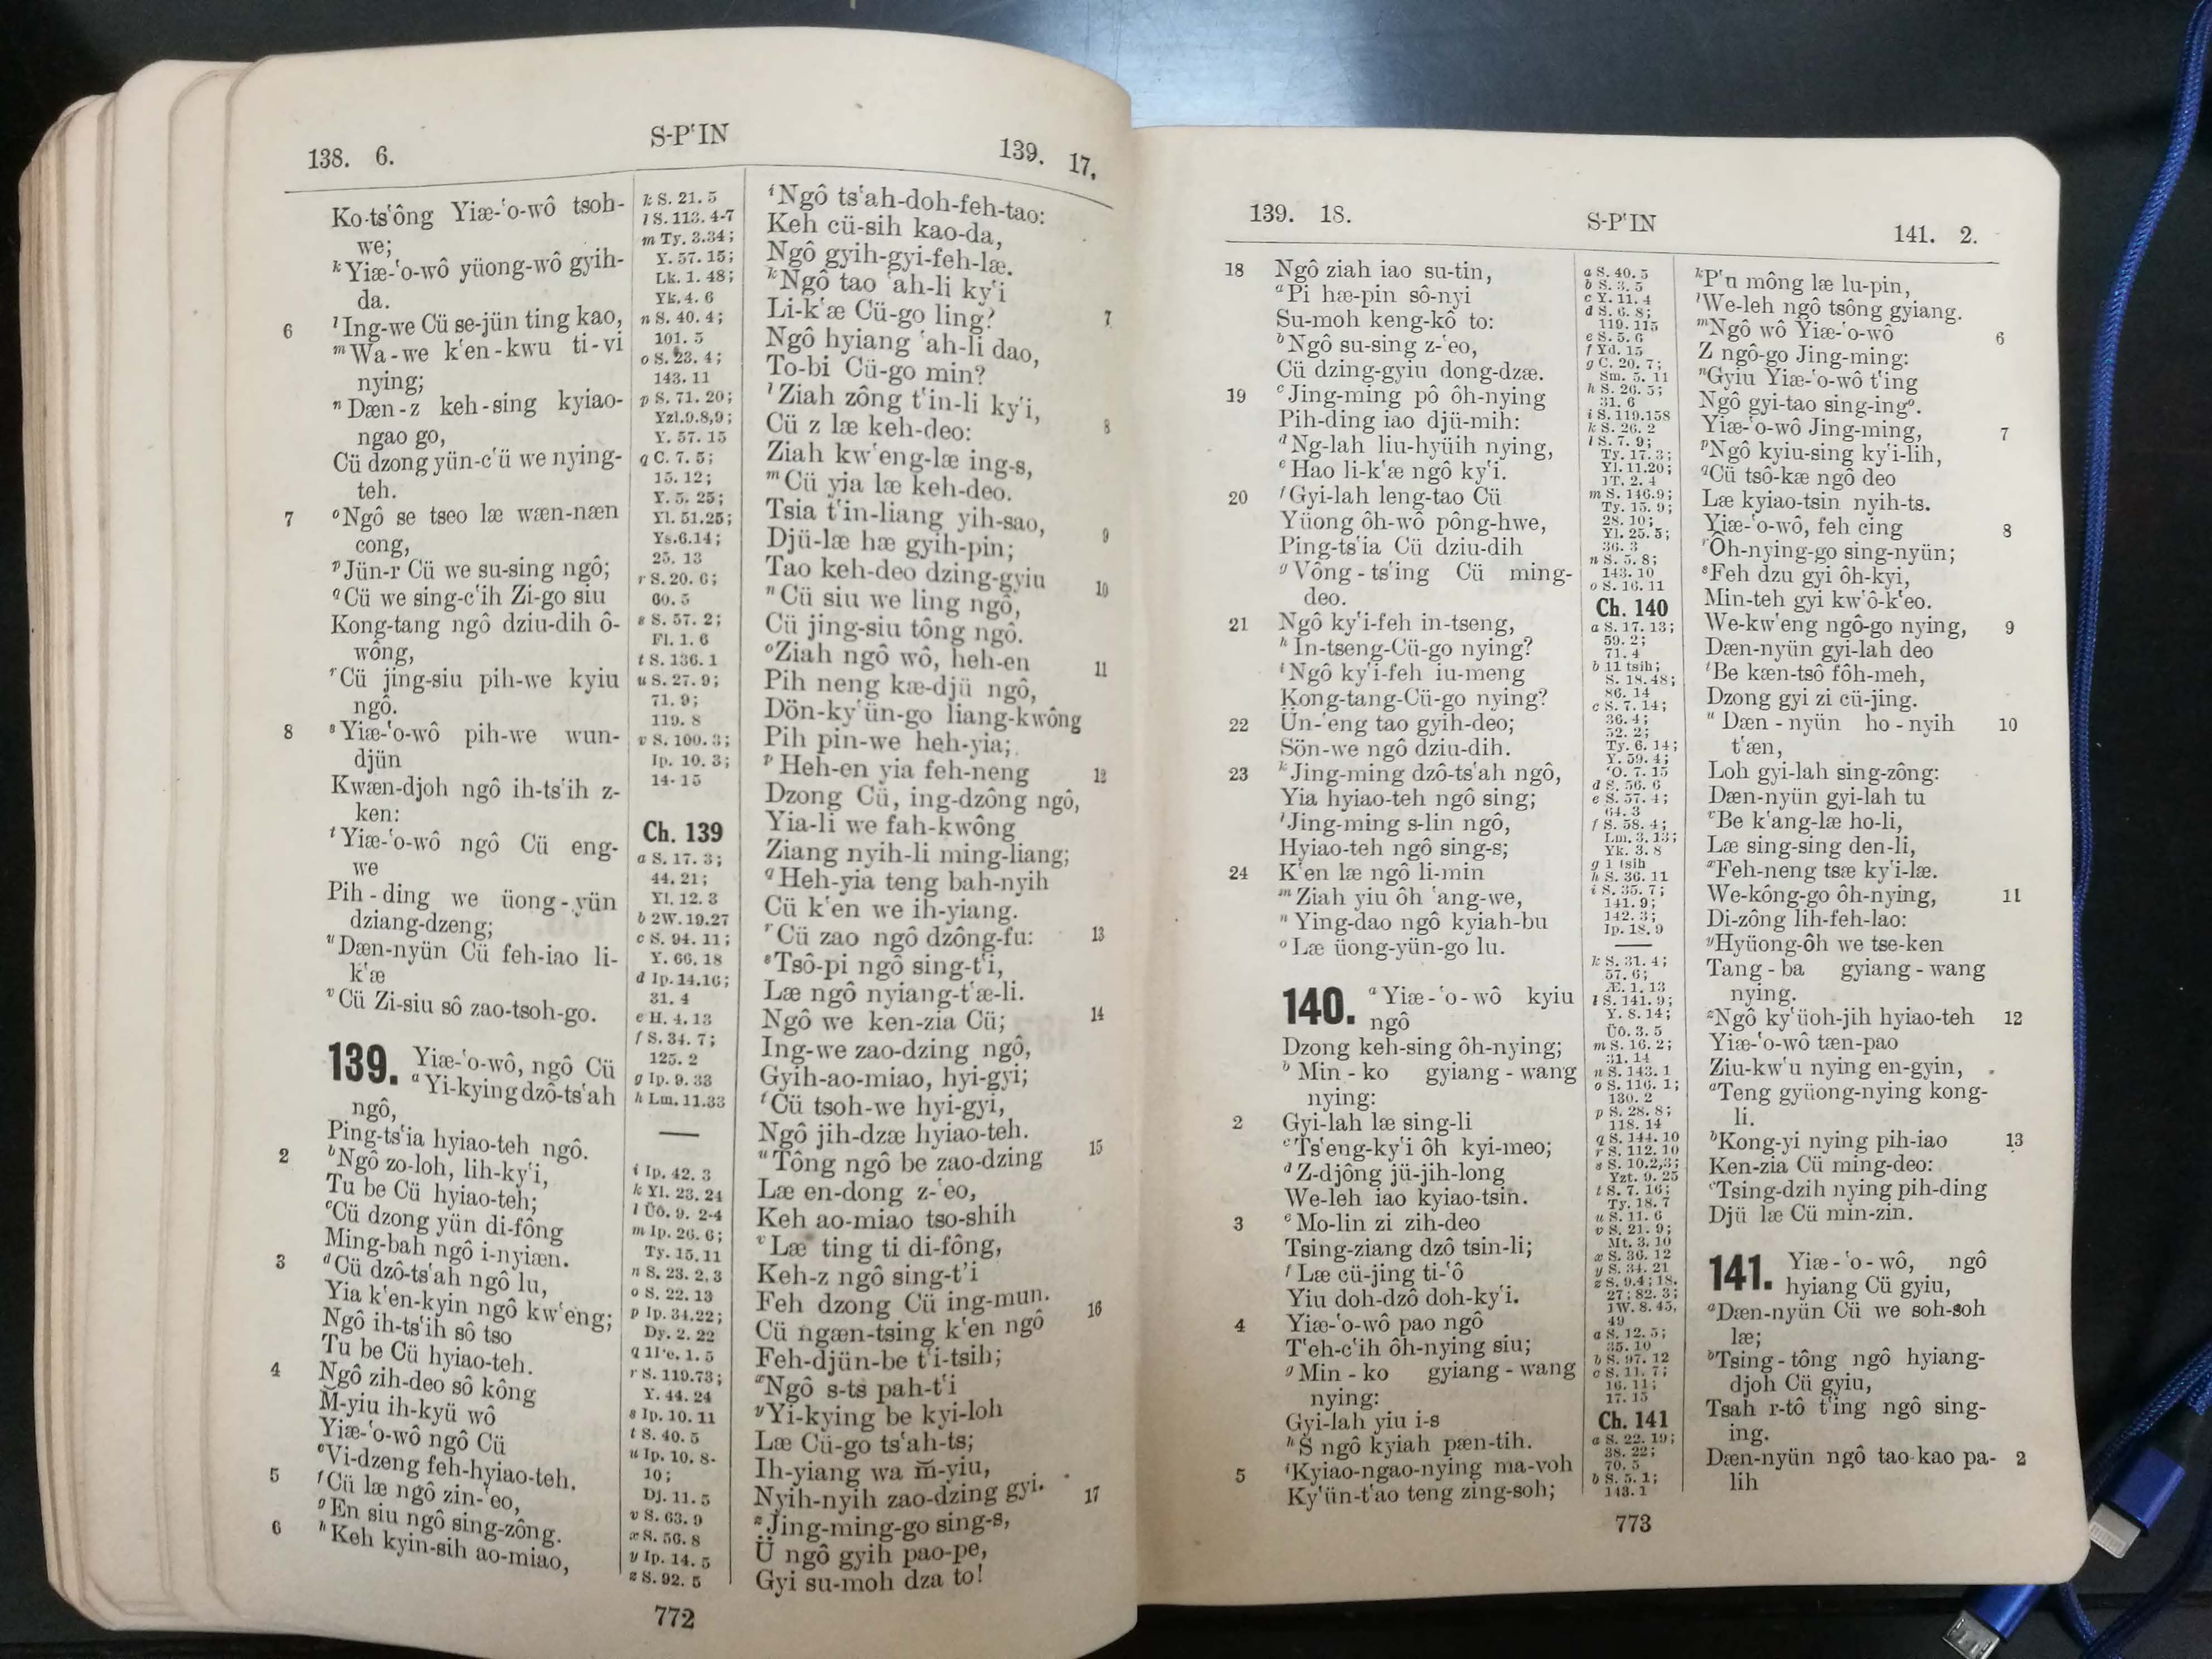 138. 6.
S-P'IN
139. 17.
Ko-ts'ông Yiæ-'o-wô tsoh-
we;
k Yiæ-'o-wô yüong-wô gyih-
da.
6 l Ing-we Cü se-jün ting kao,
m Wa-we k'en-kwu ti-vi
nying;
n Dæn-z keh-sing kyiao-
ngao go,
Cü dzong yün-c'ü we nying-
teh.
7 o Ngô se tseo læ wæn-næn
cong,
p Jün-r Cü we su-sing ngô;
q Cü we sing-c'ih Zi-go siu
Kong-tang ngô dziu-dih ô-
wông,
r Cü jing-siu pih-we kyiu
ngô.
8 s Yiæ-'o-wô pih-we wun-
djün
Kwæn-djoh ngô ih-ts'ih z-
ken:
t Yiæ-'o-wô ngô Cü eng-
we
Pih-ding we üong-yün
dziang-dzeng;
u Dæn-nyün Cü feh-iao li-
k'æ
v Cü Zi-siu sô zao-tsoh-go.
139. Yiæ-'o-wô, ngô Cü
a Yi-kying dzô-ts'ah
ngô,
Ping-ts'ia hyiao-teh ngô.
2 b Ngô zo-loh, lih-ky'i,
Tu be Cü hyiao-teh;
c Cü dzong yün di-fông
Ming-bah ngô i-nyiæn.
3 d Cü dzô-ts'ah ngô lu,
Yia k'en-kyin ngô kw'eng;
Ngô ih-ts'ih sô tso
Tu be Cü hyiao-teh.
4 Ngô zih-deo sô kông
M̆-yiu ih-kyü wô
Yiæ-'o-wô ngô Cü
e Vi-dzeng feh-hyiao-teh.
5 f Cü læ ngô zin-'eo,
g En siu ngô sing-zông.
6 h Keh kyin-sih ao-miao,
k S. 21. 5
l S. 113. 4-7
m Ty. 3.34;
Y. 57. 15;
Lk. 1. 48;
Yk. 4. 6
n S. 40. 4;
101. 5
o S. 23. 4;
143. 11
p S. 71. 20;
Yzl.9.8,9;
Y. 57. 15
q C. 7. 5;
15. 12;
Y. 5. 25;
Yl. 51.25;
Ys.6.14;
25. 13
r S. 20. 6;
60. 5
s S. 57. 2;
Fl. 1. 6
t S. 136. 1
u S. 27. 9;
71. 9;
119. 8
v S. 100. 3;
Ip. 10. 3;
14. 15
Ch. 139
a S. 17. 3;
44. 21;
Yl. 12. 3
b 2W. 19.27
c S. 94. 11;
Y. 66. 18
d Ip. 14.16;
31. 4
e H. 4. 13
f S. 34. 7;
125. 2
g Ip. 9. 33
h Lm. 11.33
i Ip. 42. 3
k Yl. 23. 24
l Üô. 9. 2-4
m Ip. 26. 6;
Ty. 15. 11
n S. 23. 2, 3
o S. 22. 13
p Ip. 34.22;
Dy. 2. 22
q 1I'e. 1. 5
r S. 119.73;
Y. 44. 24
s Ip. 10. 11
t S. 40. 5
u Ip. 10. 8-
10;
Dj. 11. 5
v S. 63. 9
x S. 56. 8
y Ip. 14. 5
z S. 92. 5
i Ngô ts'ah-doh-feh-tao:
Keh cü-sih kao-da,
Ngô gyih-gyi-feh-læ.
k Ngô tao 'ah-li ky'i
Li-k'æ Cü-go ling? 7
Ngô hyiang 'ah-li dao,
To-bi Cü-go min?
l Ziah zông t'in-li ky'i,
Cü z læ keh-deo: 8
Ziah kw'eng-læ ing-s,
m Cü yia læ keh-deo.
Tsia t'in-liang yih-sao, 9
Djü-læ hæ gyih-pin;
Tao keh-deo dzing-gyiu 10
n Cü siu we ling ngô,
Cü jing-siu tông ngô.
o Ziah ngô wô, heh-en 11
Pih neng kæ-djü ngô,
Dön-ky'ün-go liang-kwông
Pih pin-we heh-yia;
p Heh-en yia feh-neng 12
Dzong Cü, ing-dzông ngô,
Yia-li we fah-kwông
Ziang nyih-li ming-liang;
q Heh-yia teng bah-nyih
Cü k'en we ih-yiang.
r Cü zao ngô dzông-fu: 13
s Tsô-pi ngô sing-t'i,
Læ ngô nyiang-t'æ-li.
Ngô we ken-zia Cü; 14
Ing-we zao-dzing ngô,
Gyih-ao-miao, hyi-gyi;
t Cü tsoh-we hyi-gyi,
Ngô jih-dzæ hyiao-teh.
u Tông ngô be zao-dzing 15
Læ en-dong z-'eo,
Keh ao-miao tso-shih
v Læ ting ti di-fông,
Keh-z ngô sing-t'i
Feh dzong Cü ing-mun.
Cü ngæn-tsing k'en ngô 16
Feh-djün-be t'i-tsih;
x Ngô s-ts pah-t'i
y Yi-kying be kyi-loh
Læ Cü-go ts'ah-ts;
Ih-yiang wa m̆-yiu,
Nyih-nyih zao-dzing gyi.
z Jing-ming-go sing-s, 17
Ü ngô gyih pao-pe,
Gyi su-moh dza to!
772
139. 18.
S-P'IN
141. 2.
18 Ngô ziah iao su-tin,
a Pi hæ-pin sô-nyi
Su-moh keng-kô to:
b Ngô su-sing z-'eo,
Cü dzing-gyiu dong-dzæ.
19 c Jing-ming pô ôh-nying
Pih-ding iao djü-mih:
d Ng-lah liu-hyüih nying,
e Hao li-k'æ ngô ky'i.
20 f Gyi-lah leng-tao Cü
Yüong ôh-wô pông-hwe,
Ping-ts'ia Cü dziu-dih
g Vông-ts'ing Cü ming-
deo.
21 Ngô ky'i-feh in-tseng,
h In-tseng-Cü-go nying?
i Ngô ky'i-feh iu-meng
Kong-tang-Cü-go nying?
22 Ün-'eng tao gyih-deo;
Sön-we ngô dziu-dih.
23 k Jing-ming dzô-ts'ah ngô,
Yia hyiao-teh ngô sing;
l Jing-ming s-lin ngô,
Hyiao-teh ngô sing-s;
24 K'en læ ngô li-min
m Ziah yiu ôh 'ang-we,
n Ying-dao ngô kyiah-bu
o Læ üong-yün-go lu.
140. a Yiæ-'o-wô kyiu
ngô
Dzong keh-sing ôh-nying;
b Min-ko gyiang-wang
nying:
2 Gyi-lah læ sing-li
c Ts'eng-ky'i ôh kyi-meo;
d Z-djông jü-jih-long
We-leh iao kyiao-tsin.
3 e Mo-lin zi zih-deo
Tsing-ziang dzô tsin-li;
f Læ cü-jing ti-'ô
Yiu doh-dzô doh-ky'i.
4 Yiæ-'o-wô pao ngô
T'eh-c'ih ôh-nying siu;
g Min-ko gyiang-wang
nying:
Gyi-lah yiu i-s
h S ngô kyiah pæn-tih.
5 i Kyiao-ngao-nying ma-voh
Ky'ün-t'ao teng zing-soh;
a S. 40. 5
b S. 3. 5
c Y. 11. 4
d S. 6. 8;
119. 115
e S. 5. 6
f Yd. 15
g C. 20. 7;
Sm. 5. 11
h S. 26. 5;
31. 6
i S. 119.158
k S. 26. 2
l S. 7. 9;
Ty. 17. 3;
Yl. 11.20;
1T. 2. 4
m S. 146.9;
Ty. 15. 9;
28. 10;
Yl. 25. 5;
36. 3
n S. 5. 8;
143. 10
o S. 16. 11
Ch. 140
a S. 17. 13;
59. 2;
71. 4
b 11 tsih;
S. 18. 48;
86. 14
c S. 7. 14;
36. 4;
52. 2;
Ty. 6. 14;
Y. 59. 4;
'O. 7. 15
d S. 56. 6
e S. 57. 4;
64. 3
f S. 58. 4;
Lm. 3. 13;
Yk. 3. 8
g 1 tsih
h S. 36. 11
i S. 35. 7;
141. 9;
142. 3;
Ip. 18. 9
k S. 31. 4;
57. 6;
Æ. 1. 13
l S. 141. 9;
Y. 8. 14;
Üô. 3. 5
m S. 16. 2;
31. 14
n S. 143. 1
o S. 116. 1;
130. 2
p S. 28. 8;
118. 14
q S. 144. 10
r S. 112. 10
s S. 10.2,3;
Yzt. 9. 25
t S. 7. 16;
Ty. 18. 7
u S. 11. 6
v S. 21. 9;
Mt. 3. 10
x S. 36. 12
y S. 34. 21
z S. 9.4; 18.
27; 82. 3;
1W. 8. 45,
49
a S. 12. 5;
35. 10
b S. 97. 12
c S. 11. 7;
16. 11;
17. 15
Ch. 141
a S. 22. 19;
38. 22;
70. 5
b S. 5. 1;
143. 1
k P'u mông læ lu-pin,
l We-leh ngô tsông gyiang.
m Ngô wô Yiæ-'o-wô 6
Z ngô-go Jing-ming:
n Gyiu Yiæ-'o-wô t'ing
Ngô gyi-tao sing-ing o.
Yiæ-'o-wô Jing-ming, 7
p Ngô kyiu-sing ky'i-lih,
q Cü tsô-kæ ngô deo
Læ kyiao-tsin nyih-ts.
Yiæ-'o-wô, feh cing 8
r Ôh-nying-go sing-nyün;
s Feh dzu gyi ôh-kyi,
Min-teh gyi kw'ô-k'eo.
We-kw'eng ngô-go nying, 9
Dæn-nyün gyi-lah deo
t Be kæn-tsô fôh-meh,
Dzong gyi zi cü-jing.
u Dæn-nyün ho-nyih 10
t'æn,
Loh gyi-lah sing-zông:
Dæn-nyün gyi-lah tu
v Be k'ang-læ ho-li,
Læ sing-sing den-li,
x Feh-neng tsæ ky'i-læ.
We-kông-go ôh-nying, 11
Di-zông lih-feh-lao:
y Hyüong-ôh we tse-ken
Tang-ba gyiang-wang
nying.
z Ngô ky'üoh-jih hyiao-teh 12
Yiæ-'o-wô tæn-pao
Ziu-kw'u nying en-gyin,
a Teng gyüong-nying kong-
li.
b Kong-yi nying pih-iao 13
Ken-zia Cü ming-deo:
c Tsing-dzih nying pih-ding
Djü læ Cü min-zin.
141. Yiæ-'o-wô, ngô
hyiang Cü gyiu,
a Dæn-nyün Cü we soh-soh
læ;
b Tsing-tông ngô hyiang-
djoh Cü gyiu,
Tsah r-tô t'ing ngô sing-
ing.
Dæn-nyün ngô tao-kao pa- 2
lih
773